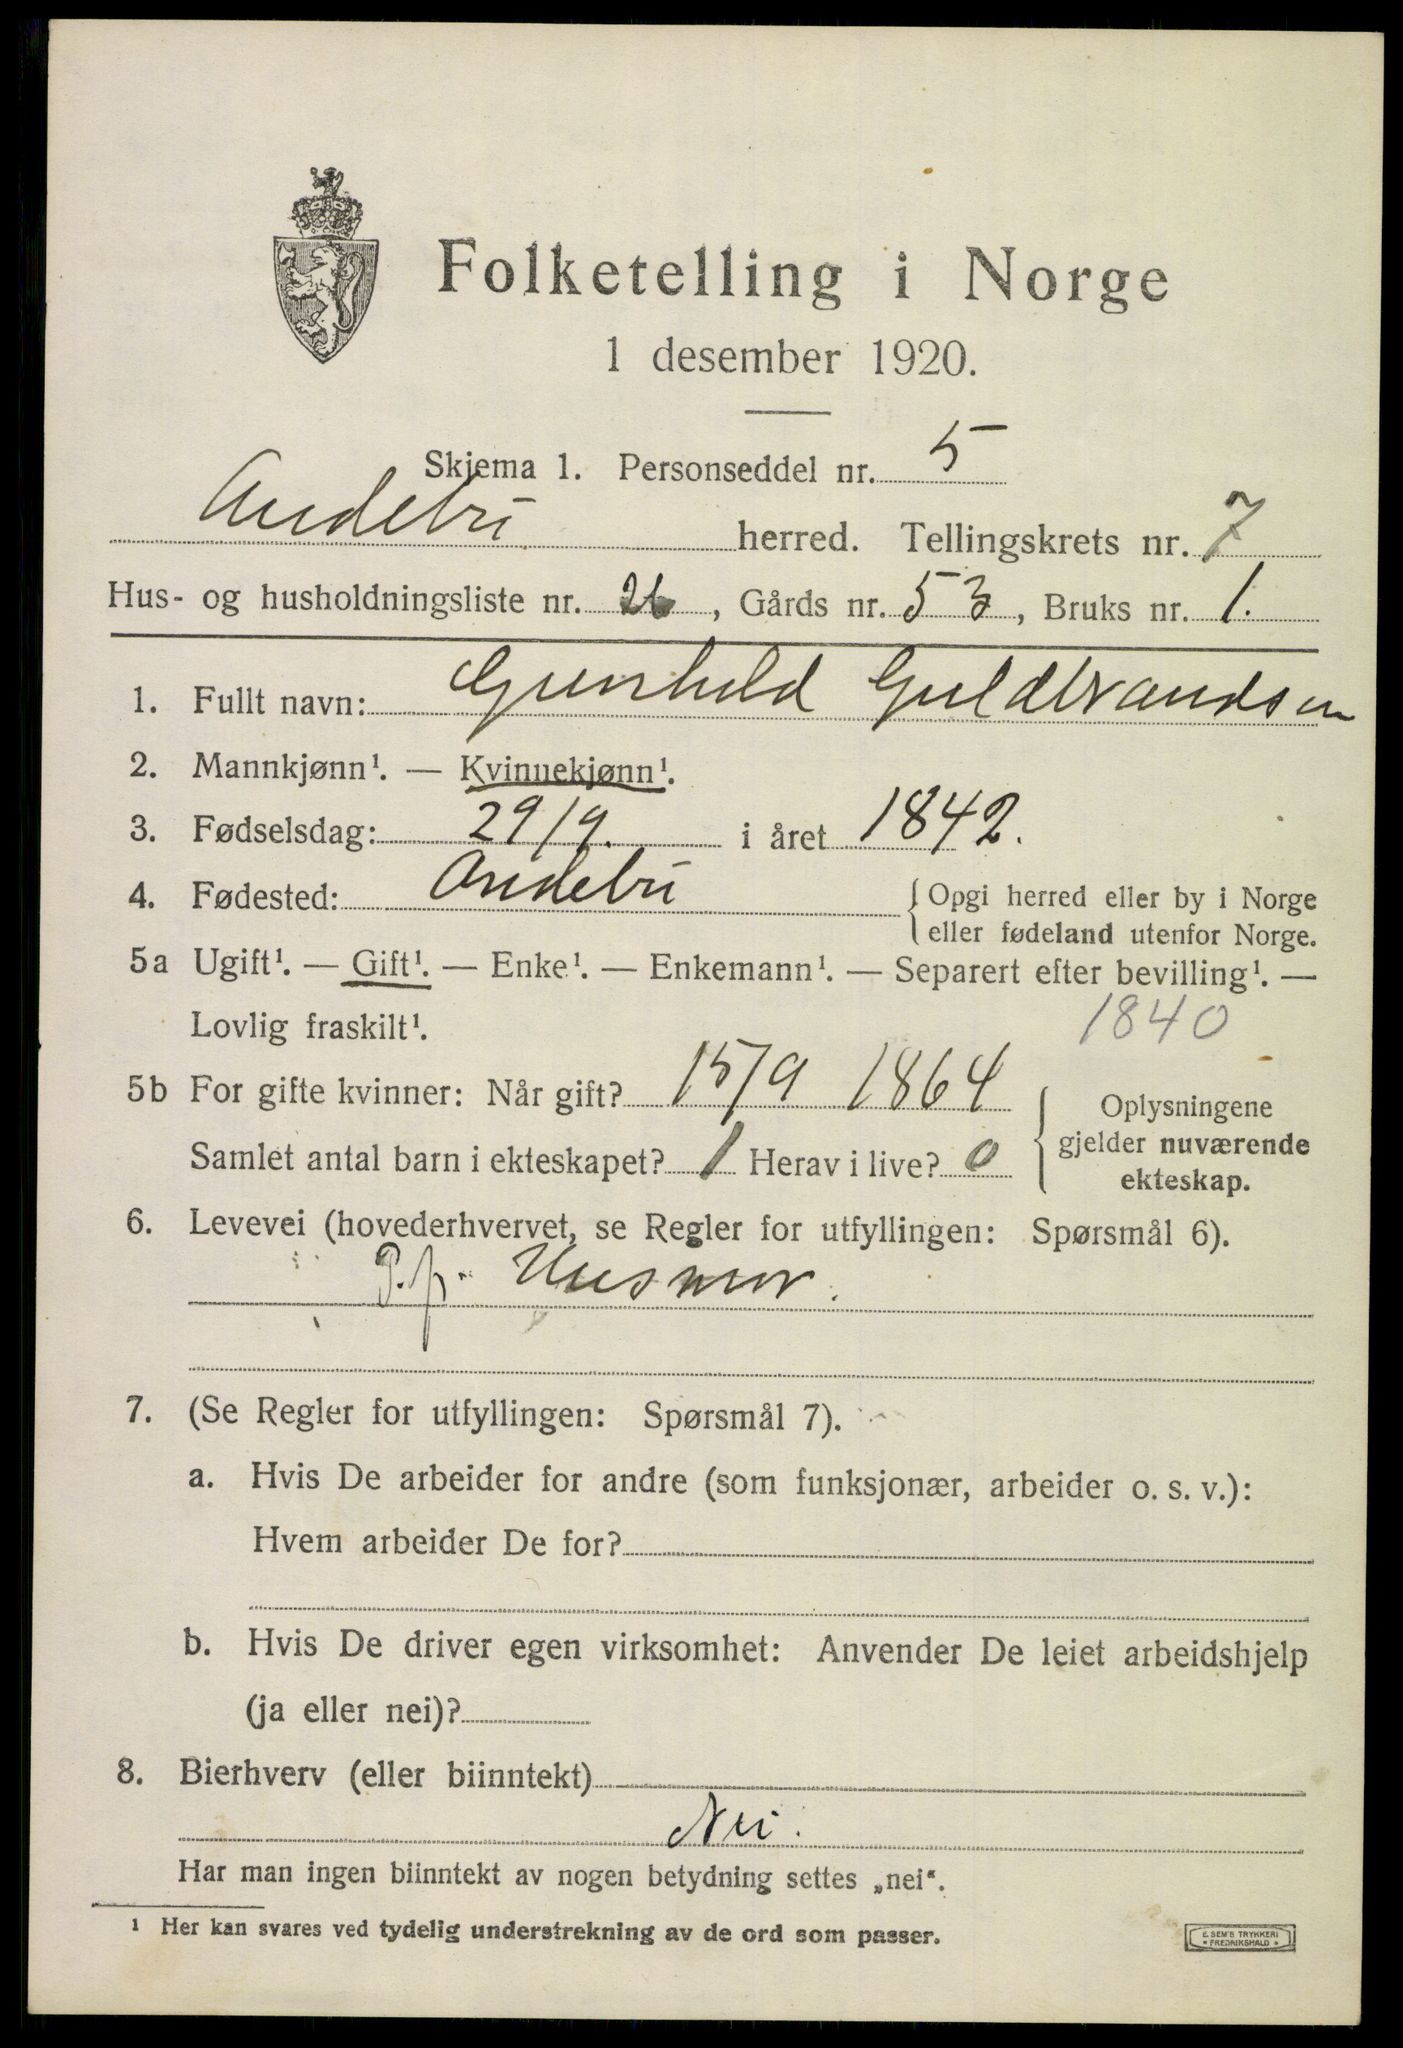 Folketelling i Norge
1 desember 1920.
Skjema 1. Personseddel nr. 5
Andebu herred. Tellingskrets nr. 7
Hus- og husholdningsliste nr. 26, Gårds nr. 53, Bruks nr. 1.
1. Fullt navn: Gunhild Guldbrandsen
2. Mannkjønn¹. — Kvinnekjønn¹.
3. Fødselsdag: 29/9. i året 1842.
4. Fødested: Andebu { Opgi herred eller by i Norge
eller fødeland utenfor Norge.
5a Ugift¹. — Gift¹. — Enke¹. — Enkemann¹. — Separert efter bevilling¹. —
Lovlig fraskilt¹. 1840
5b For gifte kvinner: Når gift? 15/9 1864 { Oplysningene
gjelder nuværende
ekteskap.
Samlet antal barn i ekteskapet? 1 Herav i live? 0
6. Levevei (hovederhvervet, se Regler for utfyllingen: Spørsmål 6).
P.f. Husmor.
7. (Se Regler for utfyllingen: Spørsmål 7).
a. Hvis De arbeider for andre (som funksjonær, arbeider o. s. v.):
Hvem arbeider De for?
b. Hvis De driver egen virksomhet: Anvender De leiet arbeidshjelp
(ja eller nei)?
8. Bierhverv (eller biinntekt)
Nei.
Har man ingen biinntekt av nogen betydning settes „nei“.
¹ Her kan svares ved tydelig understrekning av de ord som passer.
E. SEM'S TRYKKERI
• FREDRIKSHALD •